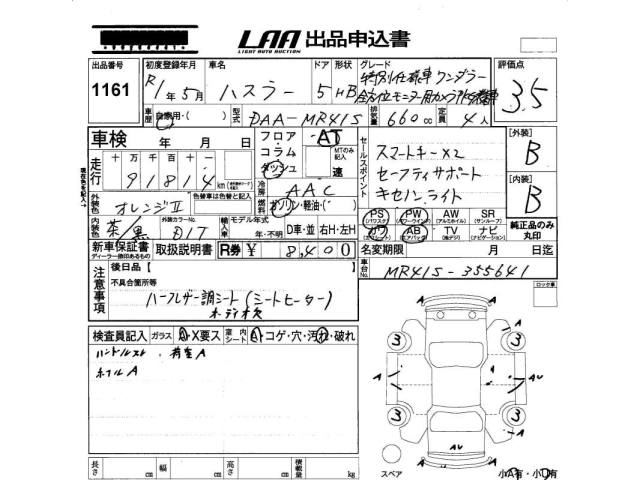 LAA 出品申込書
LIGHT AUTO AUCTION
出品番号 初度登録年月 車名 ドア 形状 グレード 評価点
1161 R1年5月 ハスラー 5 HB 特別仕様車 ワンダラー 3.5
全方位モニター用カメラ
車歴 自家用・( ) 型式 DAA-MR41S 排気量 660cc 定員 4人
車検 年 月 日 フロア AT セールスポイント [外装]
コラム MTのみ記入 スマートキー×2 B
走行 十万千百十一 ダッシュ 速 セーフティサポート
91814 km 冷房 AAC キセノンライト [内装]
現在車を記入→ B
外装色 オレンジII 色替車は色替と記入 燃料 ガソリン・軽油・( )
PS (パワステ) PW (パワーウインド) AW (アルミホイル) SR (サンルーフ)
内装色 茶/黒 外装カラーNo. DIT 輸入車 モデル年式 年・不明 D車・並 右H・左H
カワ AB (エアバック) TV (純テレビ) ナビ (ナビゲーション) 純正品のみ丸印
新車保証書 ディーラー捺印あるもの 取扱説明書 R券 ¥ 8,400 名変期限 月 日迄
車台No. MR41S-355641
注意事項 後日品【 】 ロック車
不具合箇所等
ハーフレザー調シート(シートヒーター)
オーディオ欠
検査員記入 ガラス A・X要ス 室内シート A・コゲ・穴・汚れ・破れ
ハンドルスレ 荷室A
ホイルA
A
A
3
3
A
A
AU
3
3
AU
A
A
スペア
小A有・小U有
長さ cm 幅 cm 高さ cm 積載量 kg